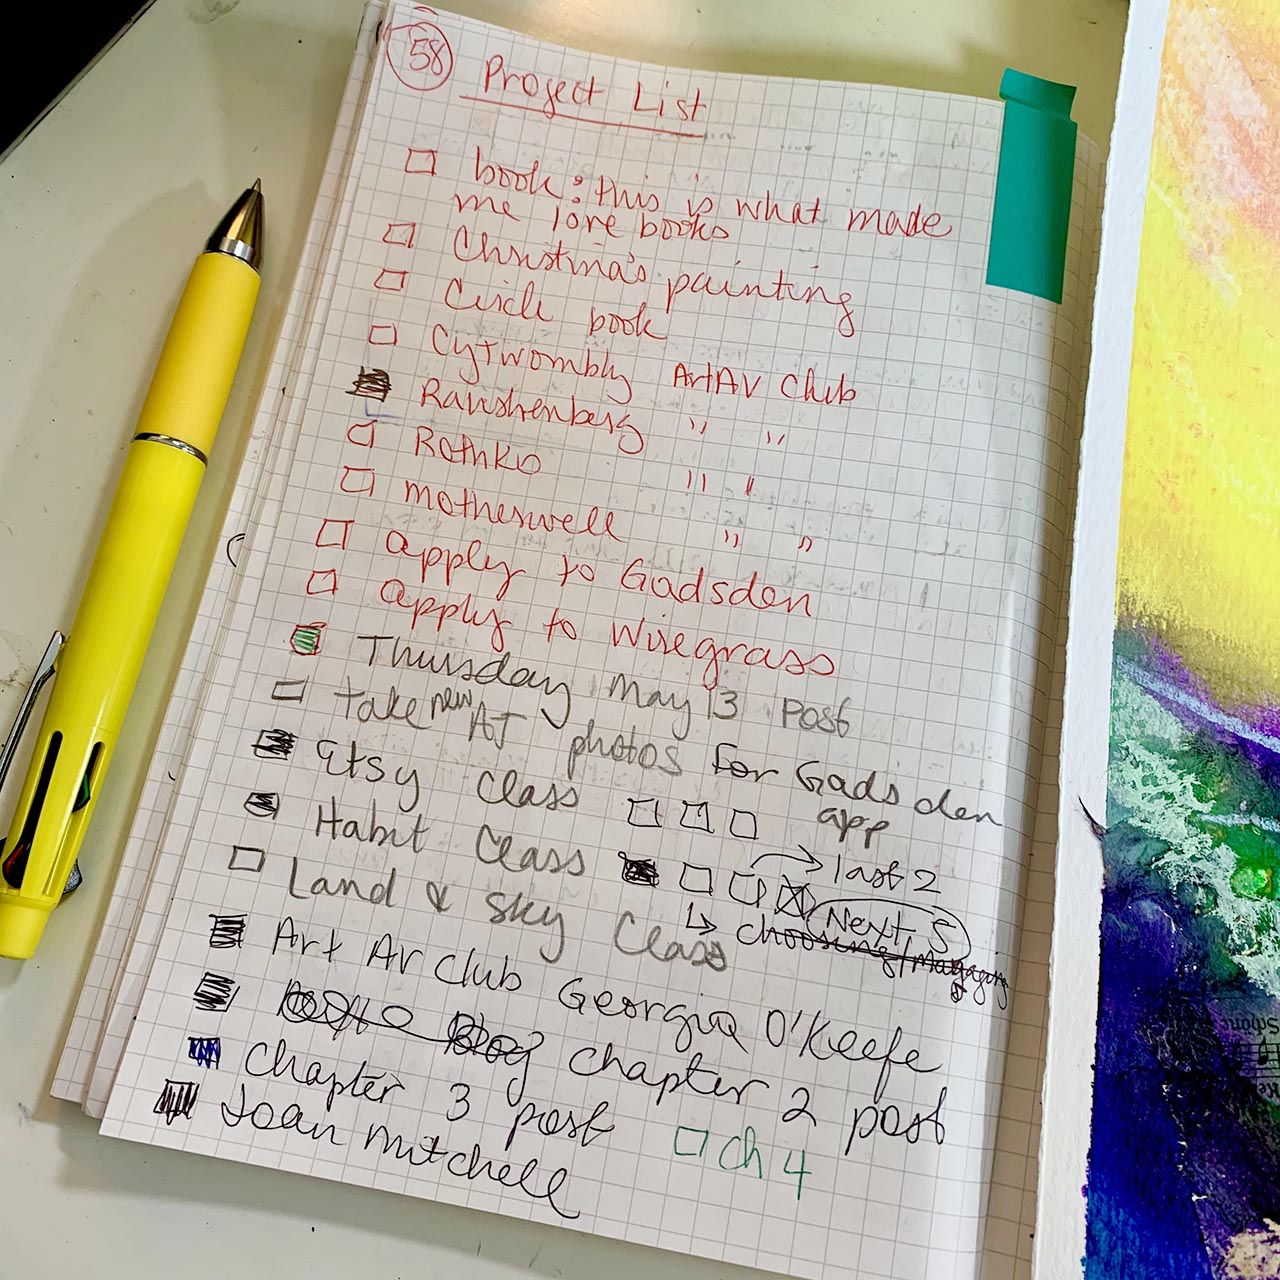 58 Project List
book: this is what made
me love books
Christina's painting
Circle book
Cy Twombly ArtAV Club
Raushenberg " "
Rothko " "
motherwell " "
apply to Gadsden
apply to Wiregrass
Thursday May 13 Post
take new AJ photos for Gadsden
app
Etsy Class
Habit Class last 2
Next 5
Land & Sky Class choosing/managing
Art AV Club Georgia O'Keefe
Blog chapter 2 post
Chapter 3 post Ch 4
Joan Mitchell